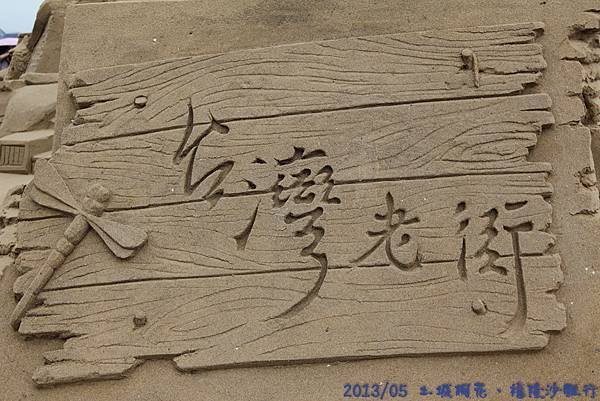 台灣老街
2013/05 土城桐花、福隆沙雕行